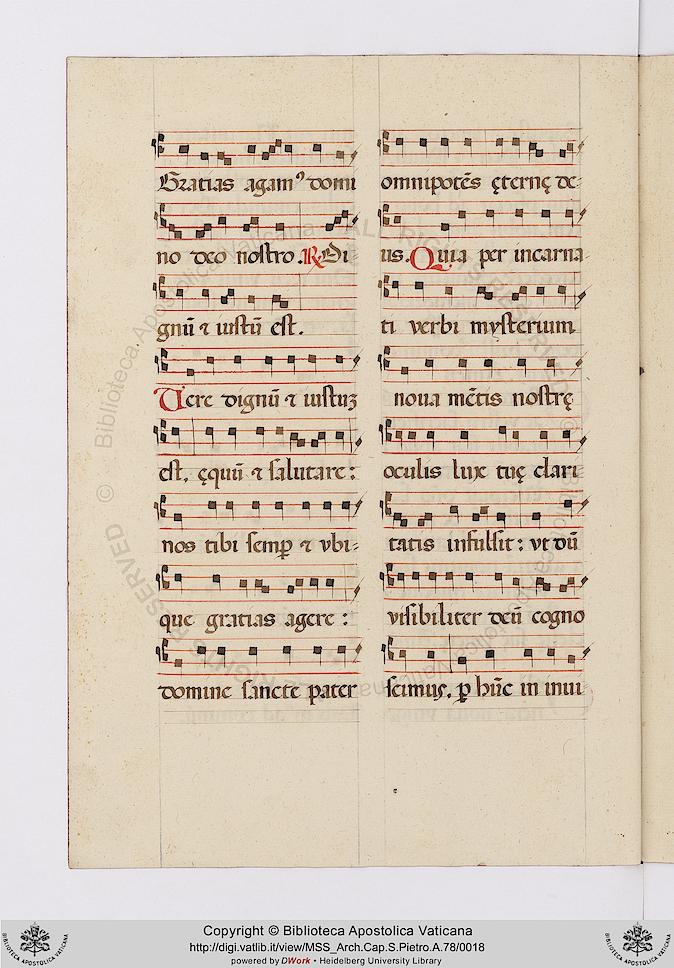 Gratias agamꝰ domi
no deo nostro. ℟. Di
gnū ⁊ iustū est.
Vere dignū ⁊ iustuꝫ
est, ęquū ⁊ salutare:
nos tibi semꝑ ⁊ vbi-
que gratias agere:
domine sancte pater
omnipotēs ęternę de-
us. Quia per incarna-
ti verbi mysterium
noua mētis nostrę
oculis lux tuę clari
tatis infulsit: vt dū
visibiliter deū cogno
scimus, ꝑ hūc in inui
© Biblioteca Apostolica Vaticana ALL RIGHTS RESERVED
Copyright © Biblioteca Apostolica Vaticana
http://digi.vatlib.it/view/MSS_Arch.Cap.S.Pietro.A.78/0018
powered by DWork • Heidelberg University Library
BIBLIOTECA APOSTOLICA VATICANA
BIBLIOTECA APOSTOLICA VATICANA